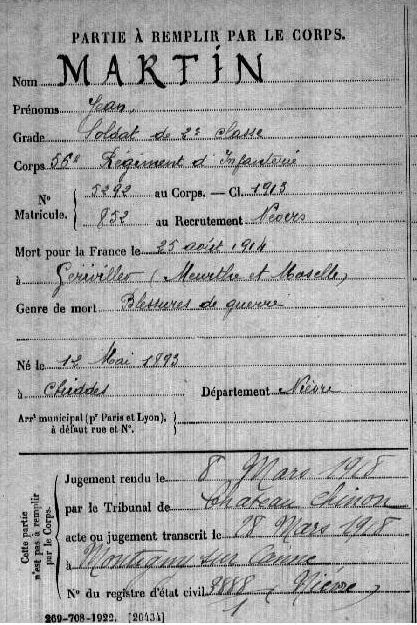 PARTIE À REMPLIR PAR LE CORPS.
Nom MARTIN
Prénoms Jean
Grade Soldat de 2e classe
Corps 56e Régiment d'Infanterie
No Matricule. 5292 au Corps. — Cl. 1913
852 au Recrutement Nevers
Mort pour la France le 25 août 1914
à Gerivillers (Meurthe et Moselle)
Genre de mort Blessures de guerre
Né le 12 Mai 1893
à Chiddes Département Nièvre
Arrt municipal (pr Paris et Lyon),
à défaut rue et No.
Cette partie n'est pas à remplir par le Corps.
Jugement rendu le 8 Mars 1918
par le Tribunal de Château Chinon
acte ou jugement transcrit le 18 Mars 1918
à Montigny sur Canne
No du registre d'état civil (Nièvre)
269-708-1922. [26434]